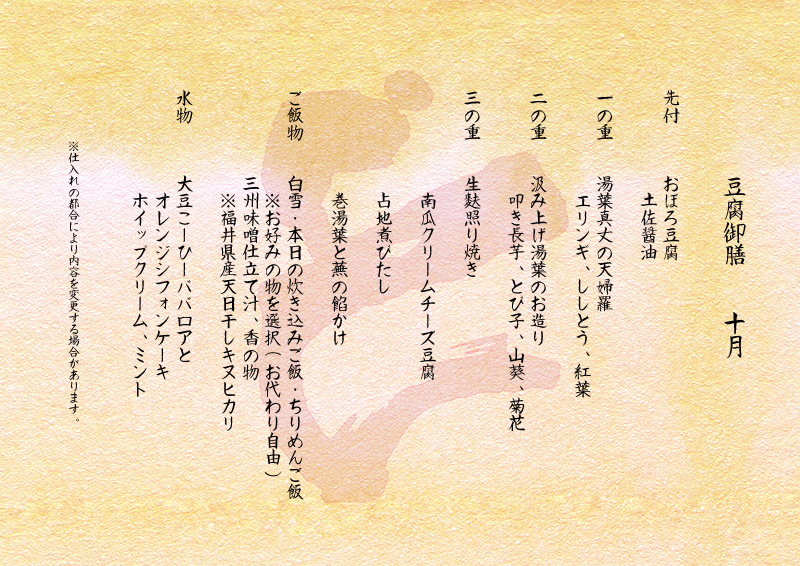 豆腐御膳　十月
先付　おぼろ豆腐
土佐醤油
一の重　湯葉真丈の天婦羅
エリンギ、ししとう、紅葉
二の重　汲み上げ湯葉のお造り
叩き長芋、とび子、山葵、菊花
三の重　生麩照り焼き
南瓜クリームチーズ豆腐
占地煮びたし
巻湯葉と蕪の餡かけ
ご飯物　白雪・本日の炊き込みご飯・ちりめんご飯
※お好みの物を選択（お代わり自由）
三州味噌仕立て汁、香の物
※福井県産天日干しキヌヒカリ
水物　大豆こーひーババロアと
オレンジシフォンケーキ
ホイップクリーム、ミント
※仕入れの都合により内容を変更する場合があります。